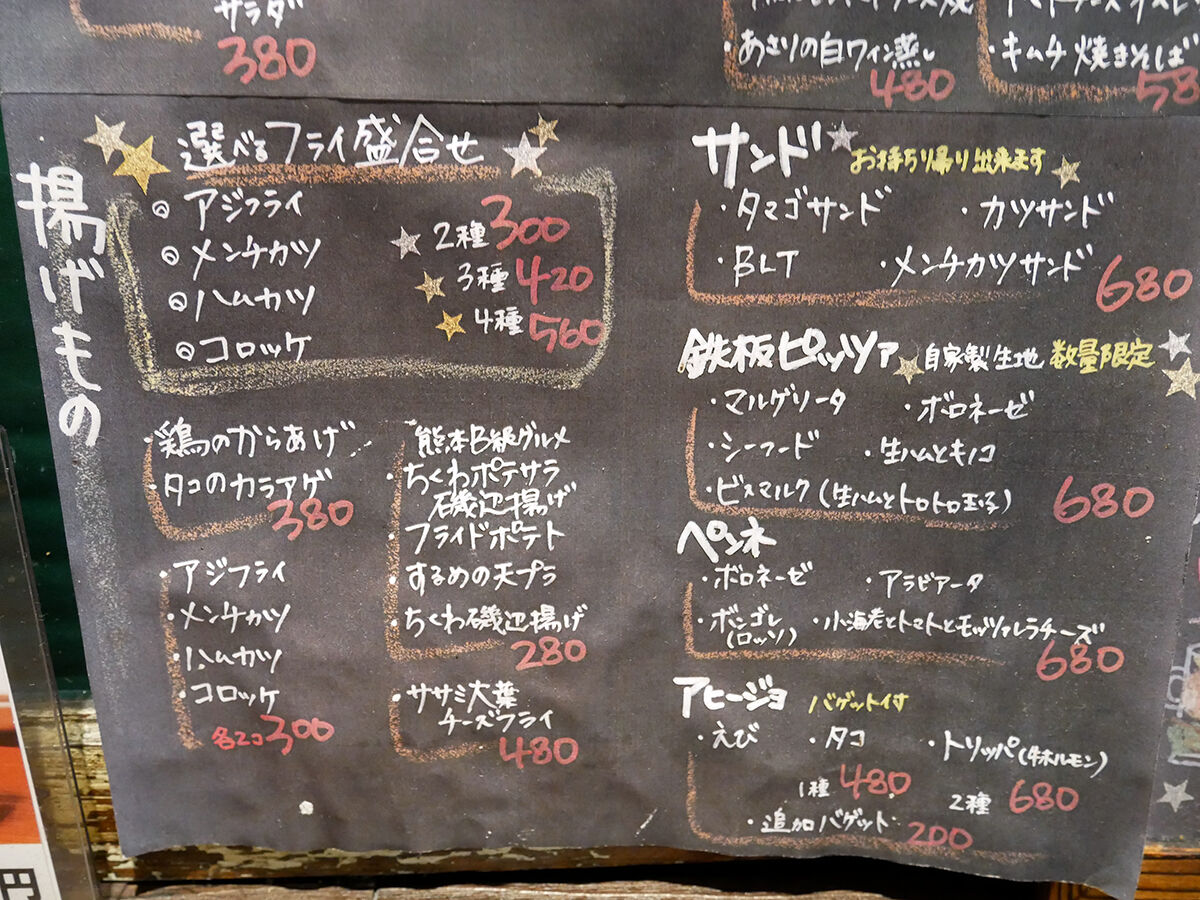 サラダ
380
・あさりの白ワイン蒸し
480
・キムチ焼きそば
58
揚げもの
選べるフライ盛合せ
◎アジフライ
◎メンチカツ
◎ハムカツ
◎コロッケ
2種 300
3種 420
4種 560
・鶏のからあげ
・タコのカラアゲ
380
・アジフライ
・メンチカツ
・ハムカツ
・コロッケ
各2コ 300
熊本B級グルメ
・ちくわポテサラ
磯辺揚げ
・フライドポテト
・するめの天プラ
・ちくわ磯辺揚げ
280
・ササミ大葉
チーズフライ
480
サンド お持ち帰り出来ます
・タマゴサンド ・カツサンド
・BLT ・メンチカツサンド
680
鉄板ピッツァ 自家製生地 数量限定
・マルゲリータ ・ボロネーゼ
・シーフード ・生ハムとキノコ
・ビスマルク(生ハムとトロトロ玉子)
680
ペンネ
・ボロネーゼ ・アラビアータ
・ボンゴレ ・小海老とトマトとモッツァレラチーズ
(ロッソ)
680
アヒージョ バゲット付
・えび ・タコ ・トリッパ(牛ホルモン)
1種 480 2種 680
・追加バゲット 200